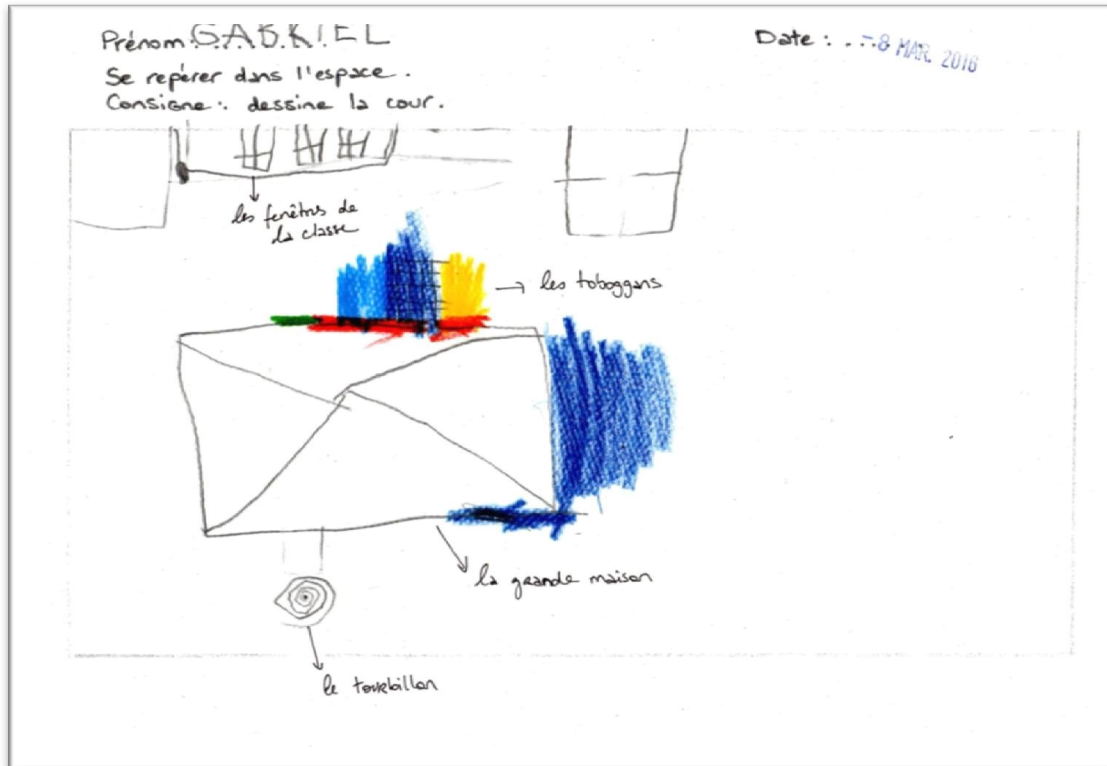 Prénom: GABRIEL
Date : ... -8 MAR. 2016
Se repérer dans l'espace.
Consigne: dessine la cour.
les fenêtres de
la classe
les toboggans
la grande maison
le tourbillon